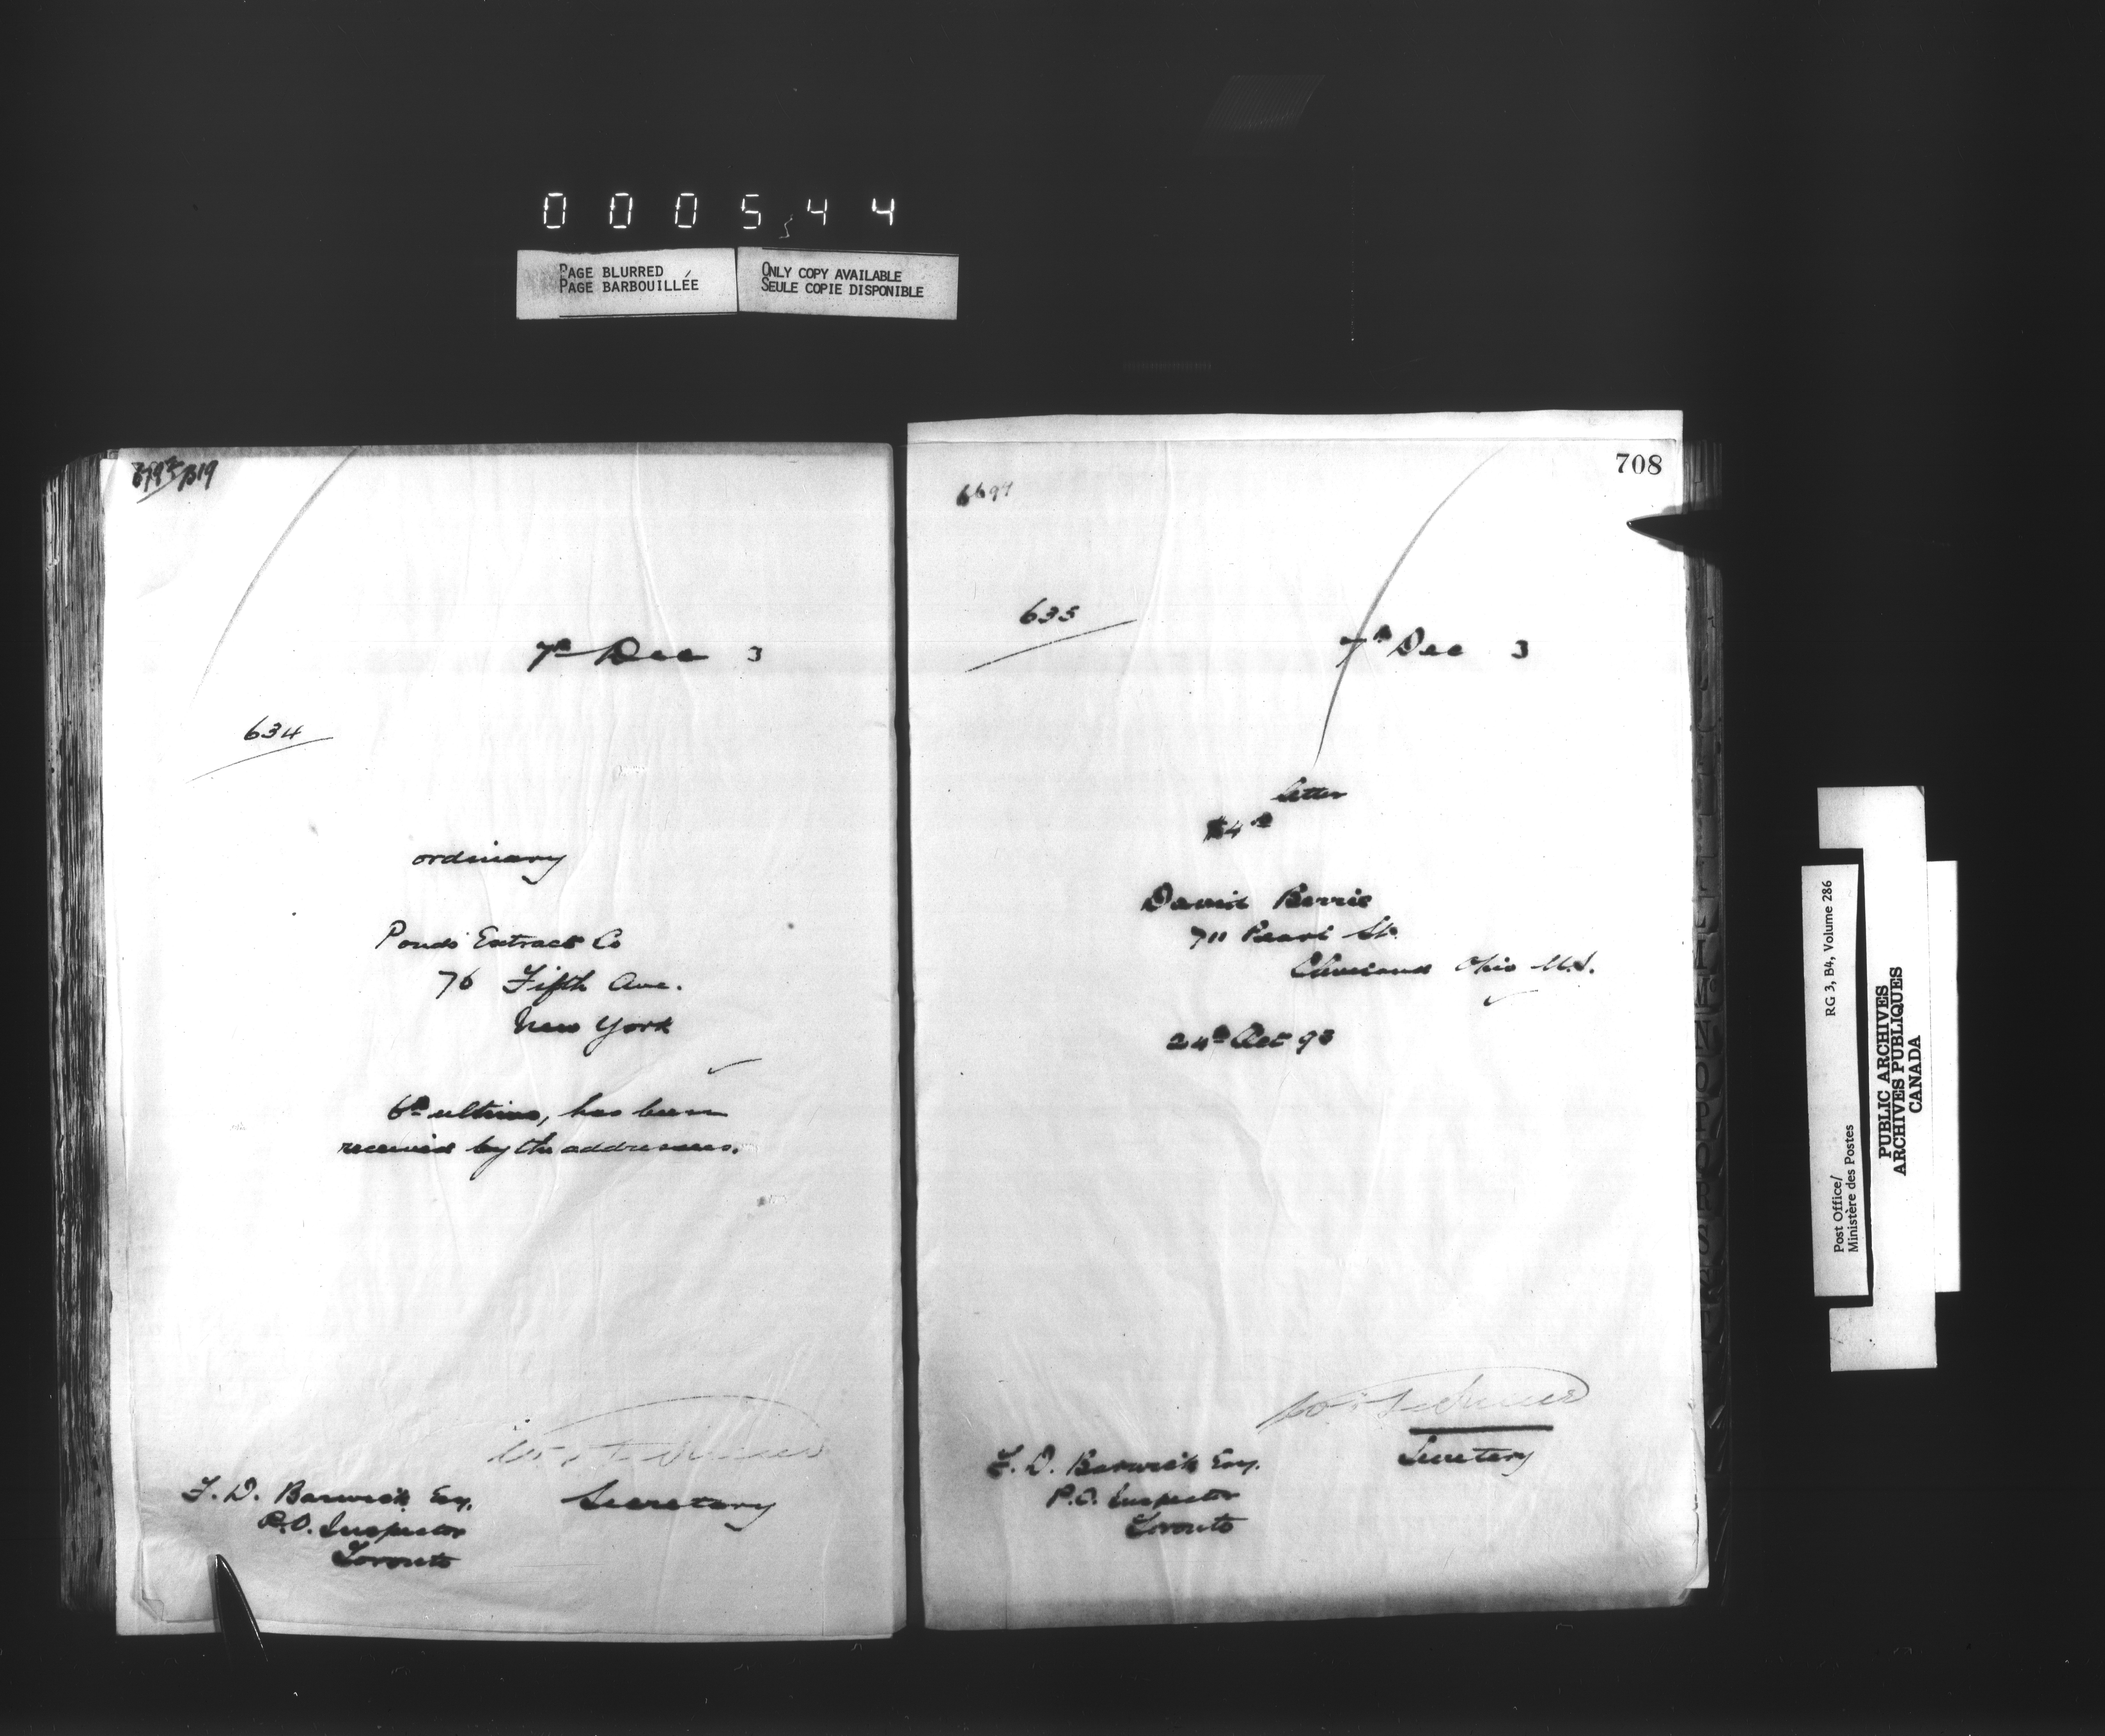 000544
PAGE BLURRED
PAGE BARBOUILLÉE
ONLY COPY AVAILABLE
SEULE COPIE DISPONIBLE
7th Dec 3
634
ordinary
Ponds Extract Co
76 Fifth Ave.
New York
6th ultimo, has been
received by the addressees.
Secretary
F. D. Barwick Esq.
P.O. Inspector
Toronto
708
6694
635
7th Dec 3
letter
$4
David Berrie
711 Pearl St.
Cleveland Ohio U.S.
24th Oct 93
Secretary
F. D. Barwick Esq.
P.O. Inspector
Toronto
Post Office/
Ministère des Postes
RG 3, B4, Volume 286
PUBLIC ARCHIVES
ARCHIVES PUBLIQUES
CANADA